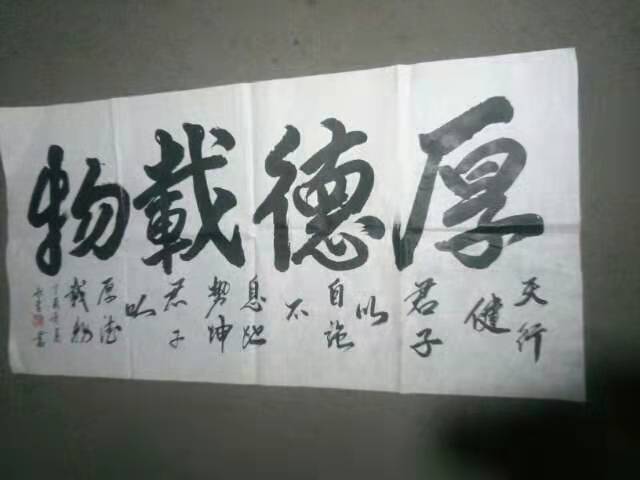 厚德載物
天行
健
君子
以
自强
不
息地
势坤
君子
以
厚德
载物